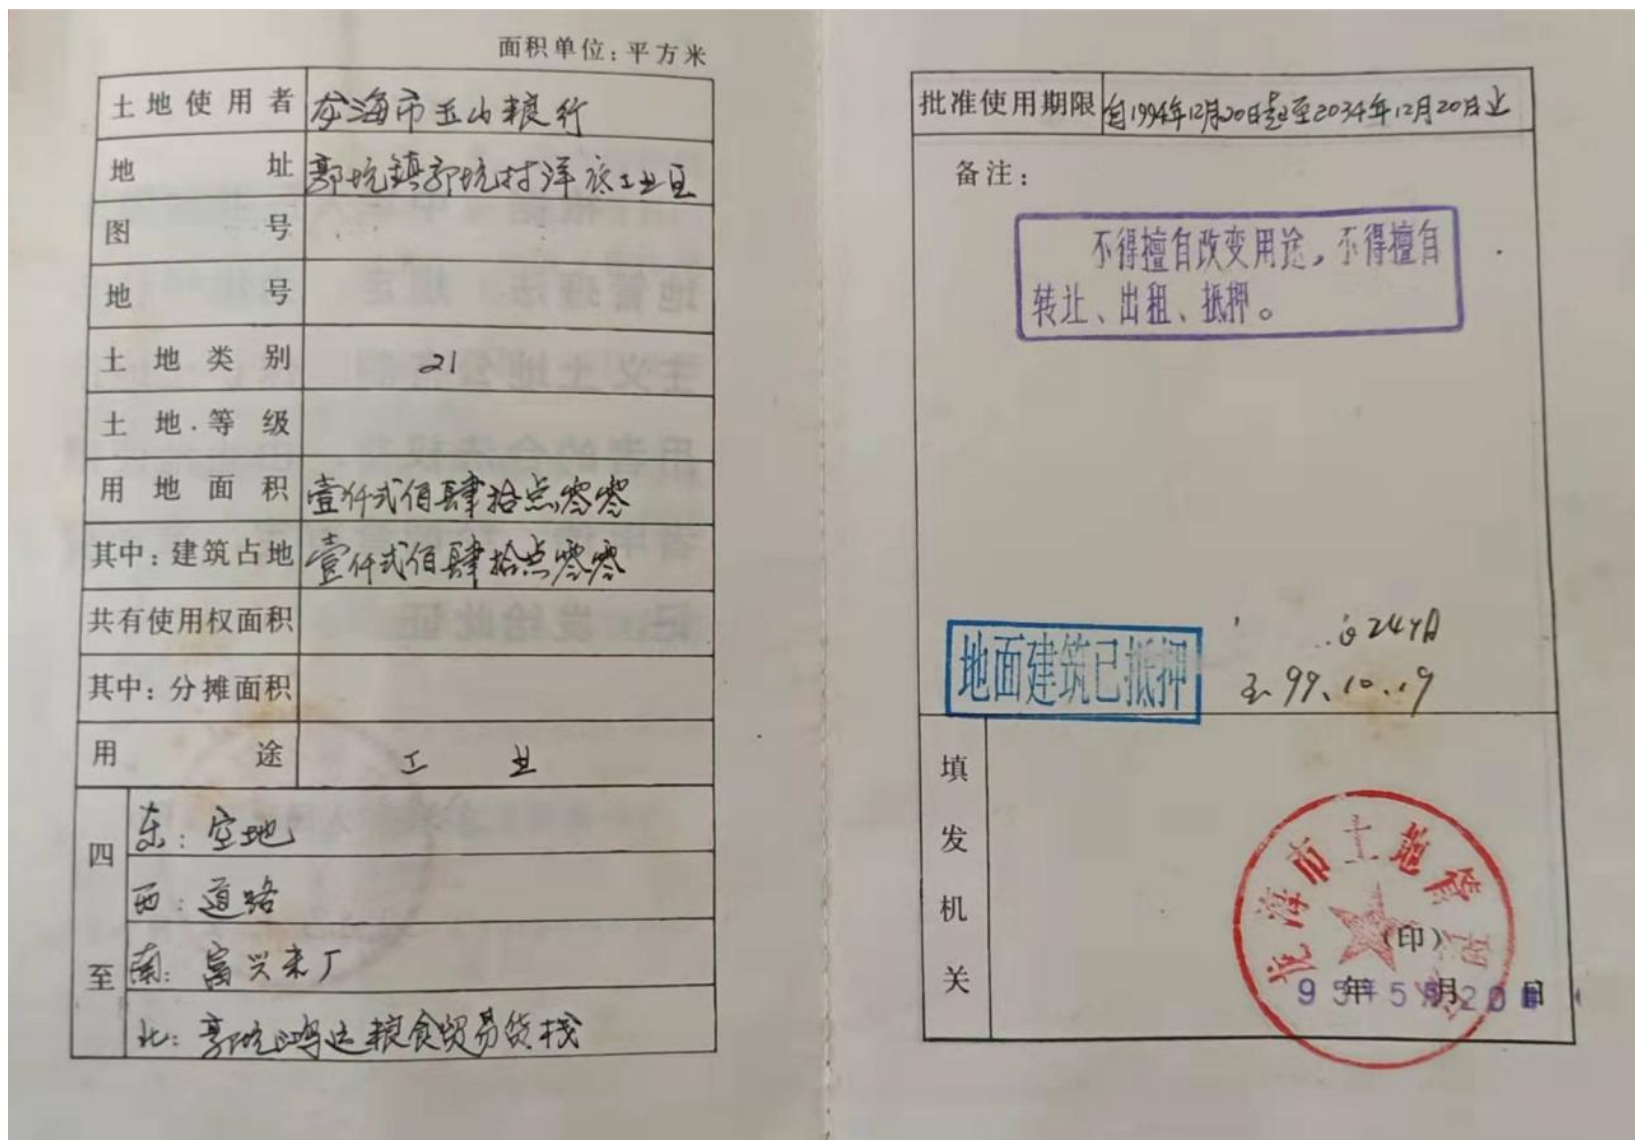 面积单位：平方米
土地使用者 龙海市玉山粮行
地址 郭坑镇郭坑村洋底工业区
图号
地号
土地类别 21
土地等级
用地面积 壹仟弍佰肆拾点零零
其中：建筑占地 壹仟弍佰肆拾点零零
共有使用权面积
其中：分摊面积
用途 工业
四至
东：空地
西：道路
南：富兴来厂
北：郭坑鸿达粮食贸易货栈
批准使用期限 自1994年12月20日起至2034年12月20日止
备注：
不得擅自改变用途，不得擅自
转让、出租、抵押。
地面建筑已抵押
99.10.19
填发机关
龙海市土地管理
（印）
95年5月20日